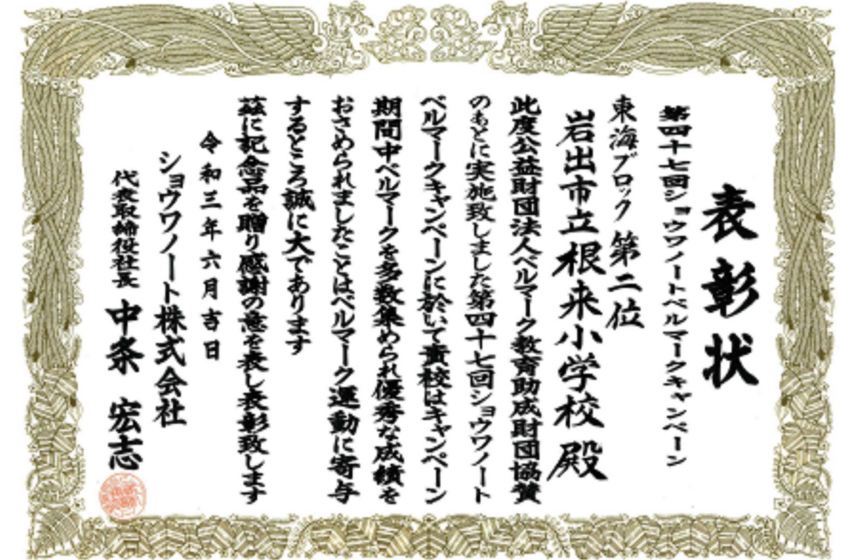 表彰状
第四十七回ショウワノートベルマークキャンペーン
東海ブロック 第二位
岩出市立根来小学校 殿
此度公益財団法人ベルマーク教育助成財団協賛
のもとに実施致しました第四十七回ショウワノート
ベルマークキャンペーンに於いて貴校はキャンペーン
期間中ベルマークを多数集められ優秀な成績を
おさめられましたことはベルマーク運動に寄与
するところ誠に大であります
茲に記念品を贈り感謝の意を表し表彰致します
令和三年六月吉日
ショウワノート株式会社
代表取締役社長 中条 宏志